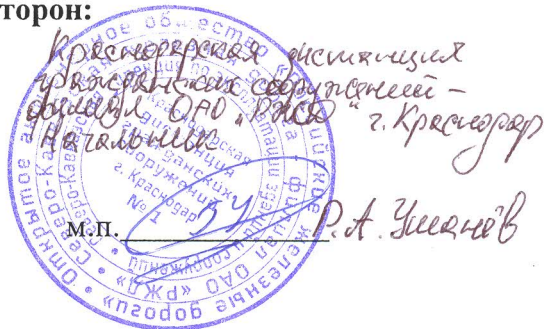 торон:
Краснодарская дистанция
гражданских сооружений –
филиал ОАО „РЖД" г. Краснодар
Начальник
м.п. Р.А. Усманов
Открытое акционерное общество
железные дороги
филиал ОАО «РЖД»
Краснодарская
дистанция
гражданских
сооружений
г. Краснодар
№ 1